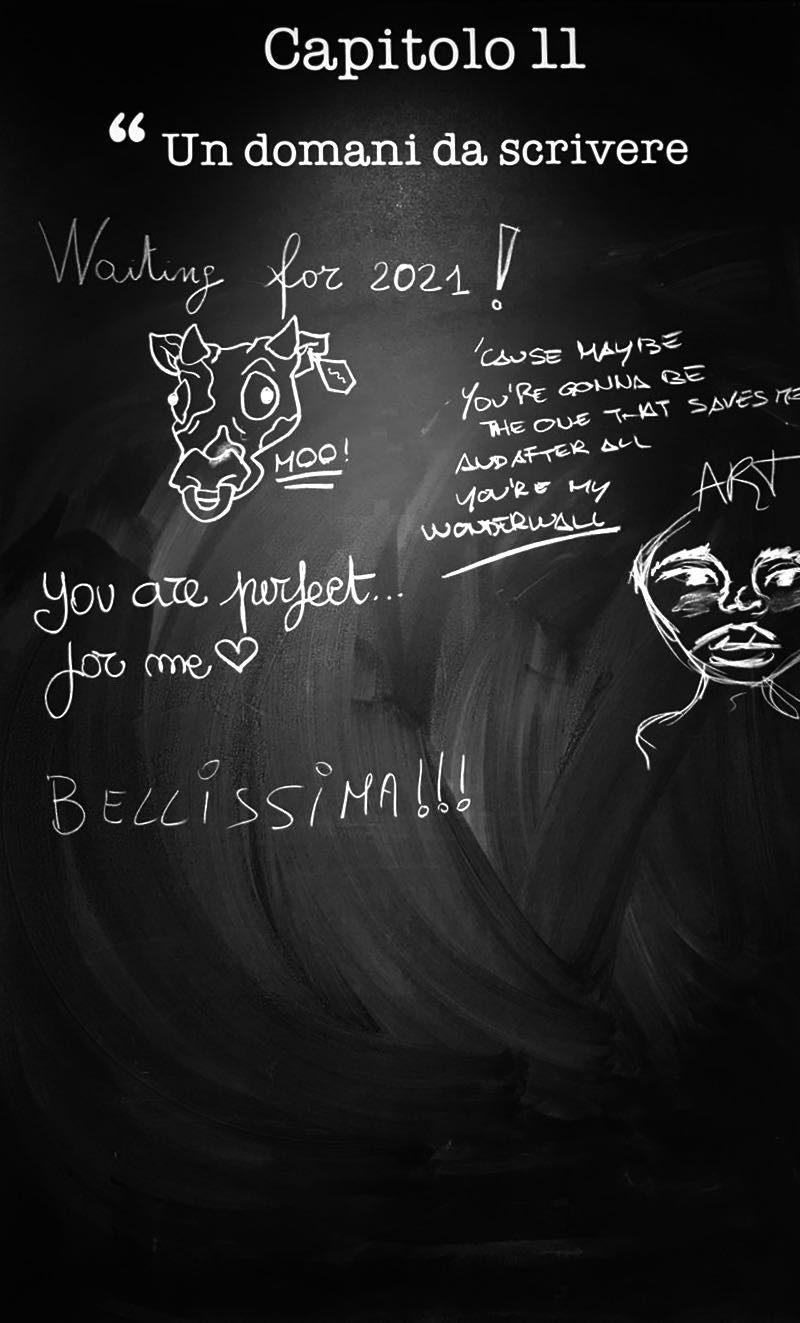 Capitolo 11
“ Un domani da scrivere
Waiting for 2021!
MOO!
'CAUSE MAYBE
YOU'RE GONNA BE
THE ONE THAT SAVES ME
AND AFTER ALL
YOU'RE MY
WONDERWALL
ART
You are perfect...
for me♡
BELLISSIMA!!!